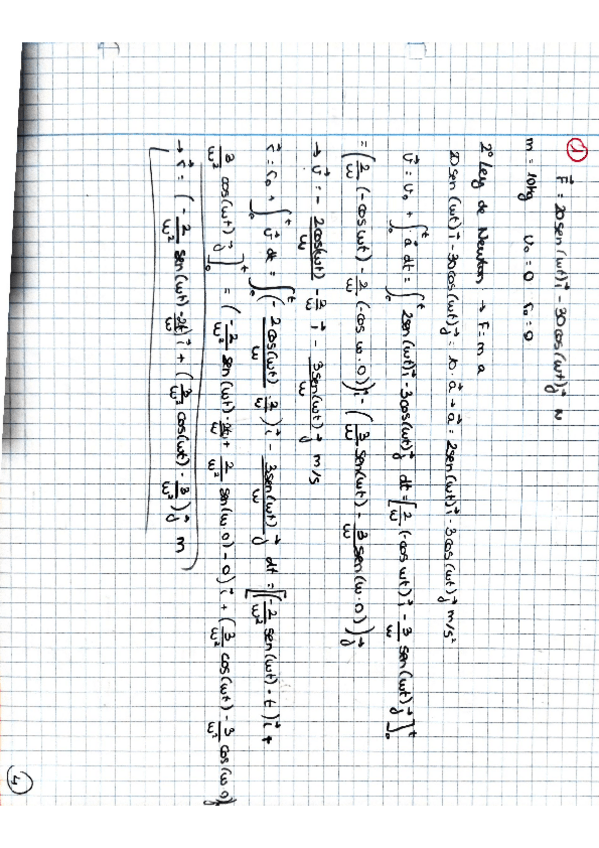 ①
F⃗ = 20 sen(ωt) i⃗ - 30 cos(ωt) j⃗ N
m = 10kg v₀ = 0 r₀ = 0
2º Ley de Newton → F = m a
20 sen(ωt) i⃗ - 30 cos(ωt) j⃗ = 10 · a⃗ → a⃗ = 2 sen(ωt) i⃗ - 3 cos(ωt) j⃗ m/s²
v⃗ = v₀ + ∫₀ᵗ a⃗ dt = ∫₀ᵗ 2 sen(ωt) i⃗ - 3 cos(ωt) j⃗ dt = [2/ω (-cos ωt) i⃗ - 3/ω sen(ωt) j⃗]₀ᵗ
= (2/ω (-cos ωt) - 2/ω (-cos ω·0)) i⃗ - (3/ω sen(ωt) - 3/ω sen(ω·0)) j⃗
→ v⃗ = - 2cos(ωt)/ω - 2/ω i⃗ - 3 sen(ωt)/ω j⃗ m/s
r⃗ = r₀ + ∫₀ᵗ v⃗ dt = ∫₀ᵗ (- 2 cos(ωt)/ω - 2/ω) i⃗ - 3 sen(ωt)/ω j⃗ dt = [(-2/ω² sen(ωt) · t) i⃗ +
3/ω² cos(ωt) j⃗]₀ᵗ = (-2/ω² sen(ωt) - 2t/ω + 2/ω² sen(ω·0) - 0) i⃗ + (3/ω² cos(ωt) - 3/ω² cos(ω·0)
→ r⃗ = (-2/ω² sen(ωt) - 2t/ω) i⃗ + (3/ω² cos(ωt) - 3/ω²) j⃗ m
④